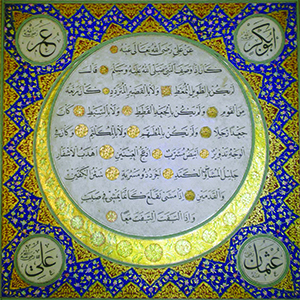 ابوبكر
عمر
عن علي رضي الله تعالى عنه
كان اذا وصف النبي صلى الله عليه وسلم قال
لم يكن بالطويل الممغط ولا بالقصير المتردد كان ربعة
من القوم ولم يكن بالجعد القطط ولا بالسبط كان
جعدا رجلا ولم يكن بالمطهم ولا بالمكلثم وكان في
الوجه تدوير ابيض مشرب ادعج العينين اهدب الاشفار
جليل المشاش والكتد اجرد ذو مسربة شثن الكفين
والقدمين اذا مشى تقلع كانما يمشي في صبب
واذا التفت التفت معا
علي
عثمان